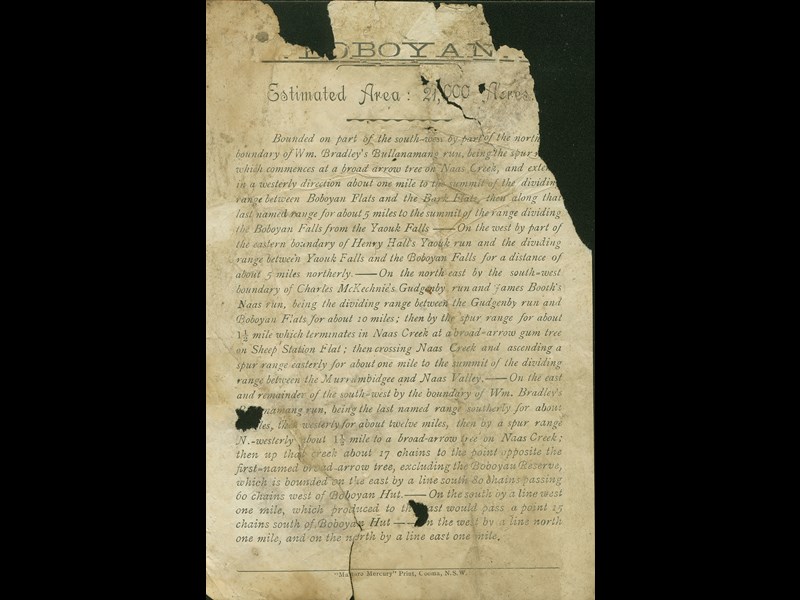 BOBOYAN.
Estimated Area: 21,000 Acres.
Bounded on part of the south-west by part of the north
boundary of Wm. Bradley's Bullanamang run, being the spur
which commences at a broad arrow tree on Naas Creek, and
in a westerly direction about one mile to the summit of the dividing
range between Boboyan Flats and the Bark Flats, then along that
last named range for about 5 miles to the summit of the range dividing
the Boboyan Falls from the Yaouk Falls —— On the west by part of
the eastern boundary of Henry Hall's Yaouk run and the dividing
range between Yaouk Falls and the Boboyan Falls for a distance of
about 5 miles northerly.——On the north east by the south-west
boundary of Charles McKechnie's Gudgenby run and James Booth's
Naas run, being the dividing range between the Gudgenby run and
Boboyan Flats for about 10 miles; then by the spur range for about
1½ mile which terminates in Naas Creek at a broad-arrow gum tree
on Sheep Station Flat; then crossing Naas Creek and ascending a
spur range easterly for about one mile to the summit of the dividing
range between the Murrumbidgee and Naas Valley.——On the east
and remainder of the south-west by the boundary of Wm. Bradley's
run, being the last named range southerly for about
then westerly for about twelve miles, then by a spur range
N.-westerly about 1½ mile to a broad-arrow tree on Naas Creek;
then up that creek about 17 chains to the point opposite the
first-named broad-arrow tree, excluding the Boboyan Reserve,
which is bounded on the east by a line south 80 chains passing
60 chains west of Boboyan Hut.——On the south by a line west
one mile, which produced to the east would pass a point 25
chains south of Boboyan Hut —— On the west by a line north
one mile, and on the north by a line east one mile.
"Manaro Mercury" Print, Cooma, N.S.W.